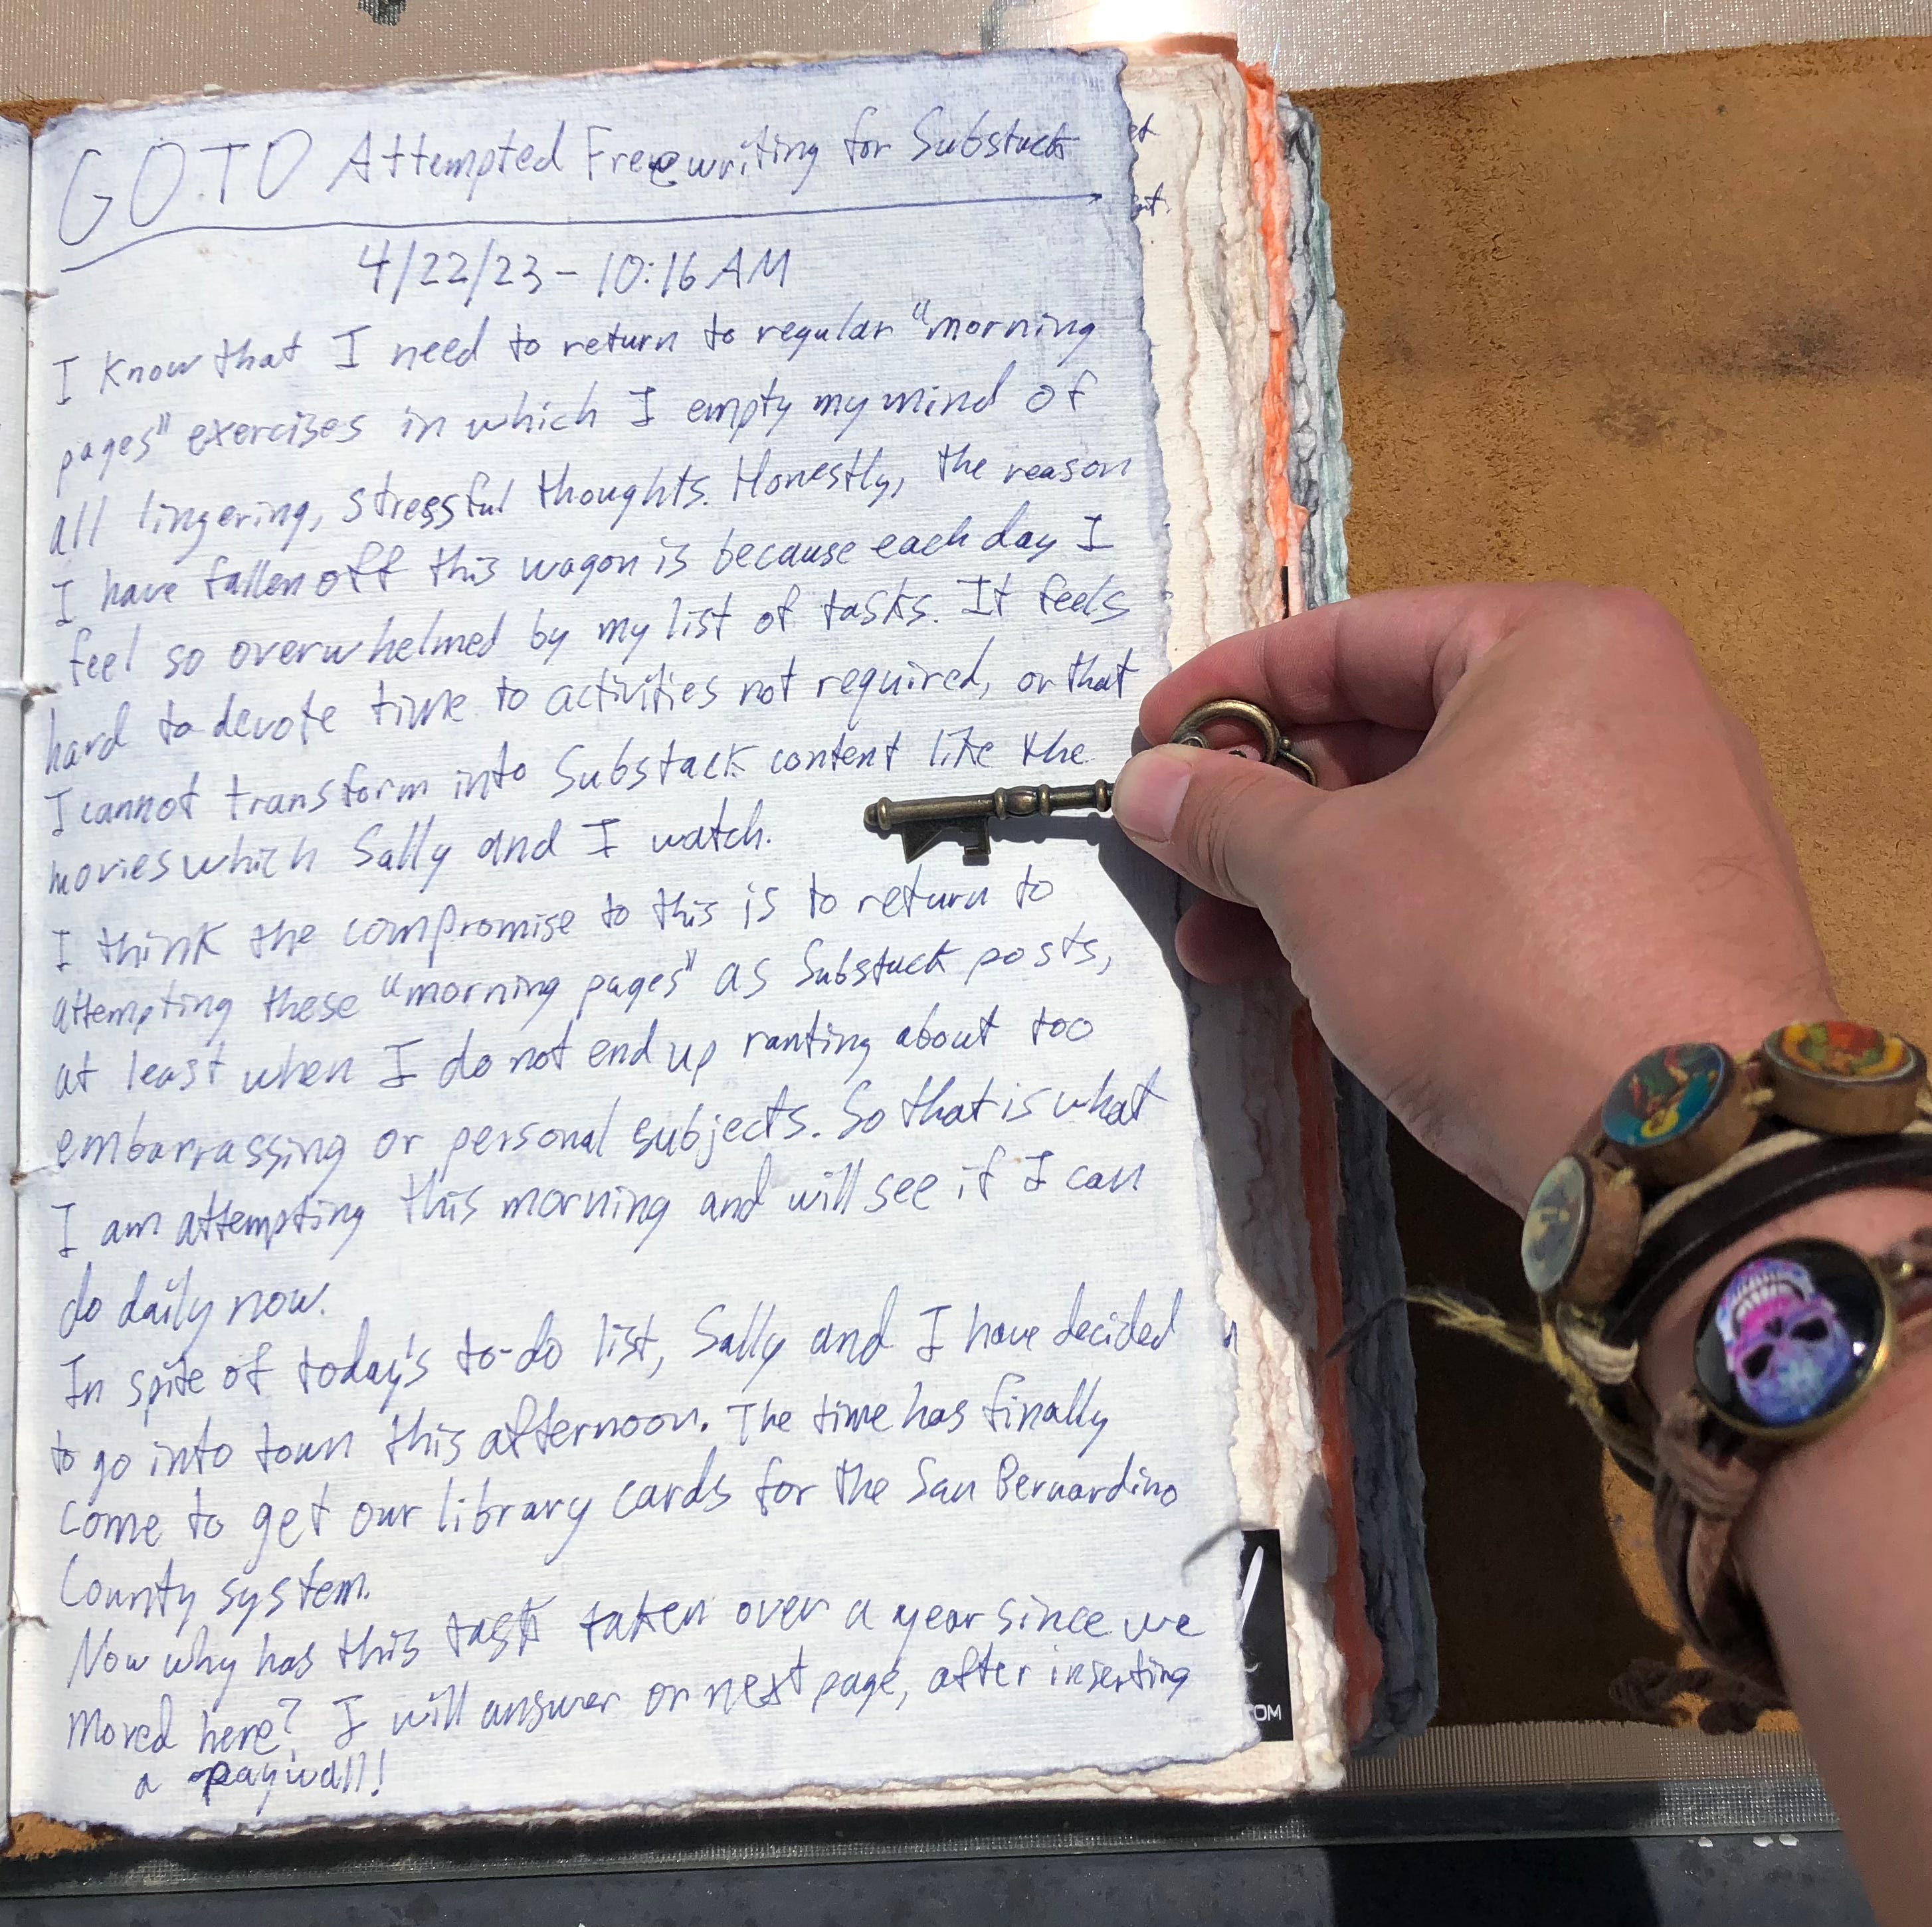 GOTO Attempted Freewriting for Substack
4/22/23 - 10:16 AM
I know that I need to return to regular "morning
pages" exercises in which I empty my mind of
all lingering, stressful thoughts. Honestly, the reason
I have fallen off this wagon is because each day I
feel so overwhelmed by my list of tasks. It feels
hard to devote time to activities not required, or that
I cannot transform into Substack content like the
movies which Sally and I watch.
I think the compromise to this is to return to
attempting these "morning pages" as Substack posts,
at least when I do not end up ranting about too
embarrassing or personal subjects. So that is what
I am attempting this morning and will see if I can
do daily now.
In spite of today's to-do list, Sally and I have decided
to go into town this afternoon. The time has finally
come to get our library cards for the San Bernardino
County system.
Now why has this task taken over a year since we
moved here? I will answer on next page, after inserting
a paywall!